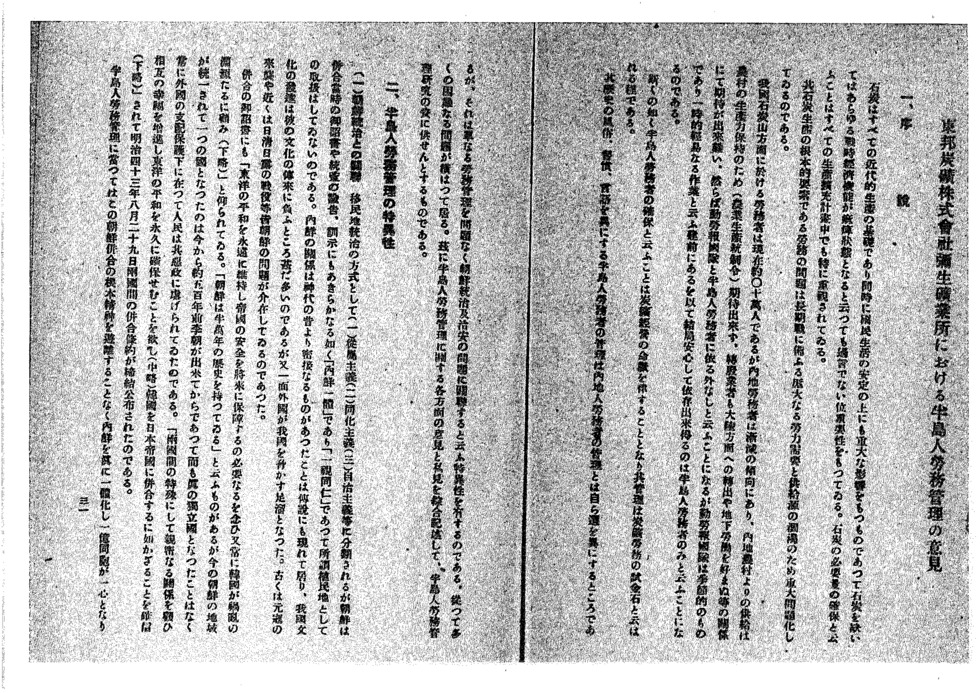 東邦炭礦株式會社彌生礦業所における半島人勞務管理の意見
一、序說
石炭はすべての近代的生產の基礎であり同時に國民生活の安定の上にも重大な影響をもつものであつて石炭を缺い
てはあらゆる戰時經濟機能が麻痺狀態となると云つても過言でない位重要性をもつてゐる。石炭の必要量の確保と云
ふことはすべての生產擴充計畫中でも特に重視されてゐる。
其石炭生產の根本的要素である勞務の問題は長期戰に備ふる厖大なる勞力需要と供給源の涸渴のため重大問題化し
てゐるのである。
我國石炭山方面に於ける勞務者は現在約〇十萬人であるが內地勞務者は漸減の傾向にあり、內地農村よりの供給は
農村の生產力保持のため（農業生產統制令）期待出來ず、轉廢業者も大陸方面への轉出や地下勞働を好まぬ等の關係
にて期待が出來難い、然らば勤勞報國隊と半島人勞務者に依る外なしと云ふことになるが勤勞報國隊は季節的のもの
であり一時的輕易なる作業と云ふ建前にあるを以て結局安心して依存出來得るのは半島人勞務者のみと云ふことにな
るのである。
斯くの如く半島人勞務者の確保と云ふことは炭礦經營の命運を律することとなり其管理は炭礦勞務の試金石と云は
れる程である。
其歷史の風俗、習慣、言語を異にする半島人勞務者の管理は內地人勞務者の管理とは自ら趣を異にするところであ
るが、それは單なる勞務管理を問題なく朝鮮統治及治安の問題に關聯すると云ふ特異性を有するのである。從つて多
くの困難なる問題が橫はつて居る。茲に半島人勞務管理に關する各方面の意見と私見を綜合記述して、半島人勞務管
理硏究の資に供せんとするものである。
二、半島人勞務管理の特異性
（一）朝鮮統治との關聯　移民地統治の方式として（一）從屬主義（二）同化主義（三）自治主義等に分類されるが朝鮮は
併合當時の御詔書や統監の諭告、訓示にもあきらかなる如く「內鮮一體」であり「一視同仁」であつて所謂植民地として
の取扱はしてゐないのである。內鮮の關係は神代の昔より密接なるものがあつたことは傳說にも現れて居り、我國文
化の發達は彼の文化の傳來に負ふところ甚だ多いのであるが又一面外國が我國を脅かす足溜となつた。古くは元寇の
來襲や近くは日淸日露の戰役等皆朝鮮の問題が介在してゐるのであつた。
併合の御詔書にも「東洋の平和を永遠に維持し帝國の安全を將來に保障するの必要なるを念ひ又常に韓國が禍亂の
淵源たるに顧み（下略）」と仰られてゐる。「朝鮮は半萬年の歷史を持つてゐる」と云ふものがあるが今の朝鮮の地域
が統一されて一つの國となつたのは今から約五百年前李朝が出來てからであつて而も眞の獨立國となつたことはなく
常に外國の支配保護下に在つて人民は其惡政に虐げられてゐたのである。「兩國間の特殊にして親密なる關係を顧ひ
相互の幸福を增進し東洋の平和を永久に確保せむことを欲し（中略）韓國を日本帝國に併合するに如かざることを確信
（下略）」されて明治四十三年八月二十九日兩國間の併合條約が締結公布されたのである。
半島人勞務管理に當つてはこの朝鮮併合の根本精神を遊離することなく內鮮を眞に一體化し一億同胞が一心となり
三一